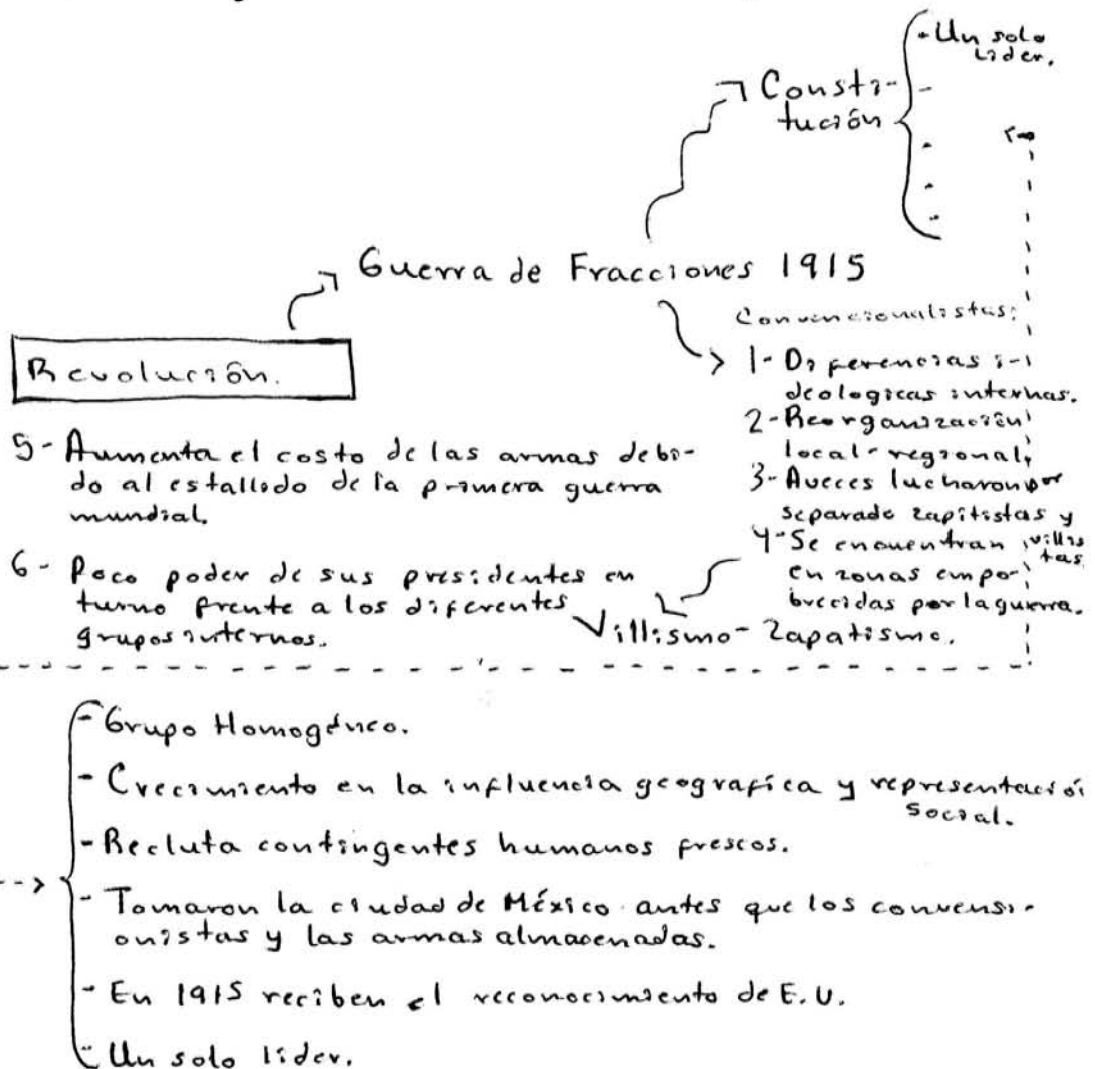 - Un solo
lider.
Consti-
tución
Guerra de Fracciones 1915
Revolución.
Convencionalistas:
1- Diferencias i-
deologicas internas.
2- Reorganización
local-regional,
3- Aveces lucharon por
separado zapitistas y
villis
tas
4- Se encuentran
en zonas empo-
brecidas por la guerra.
Villismo - Zapatismo.
5- Aumenta el costo de las armas debi-
do al estallido de la primera guerra
mundial.
6- Poco poder de sus presidentes en
turno frente a los diferentes
grupos internos.
- Grupo Homogéneo.
- Crecimiento en la influencia geografica y representació
social.
- Recluta contingentes humanos frescos.
- Tomaron la ciudad de México antes que los convensi-
onistas y las armas almacenadas.
- En 1915 reciben el reconocimiento de E.U.
- Un solo lider.